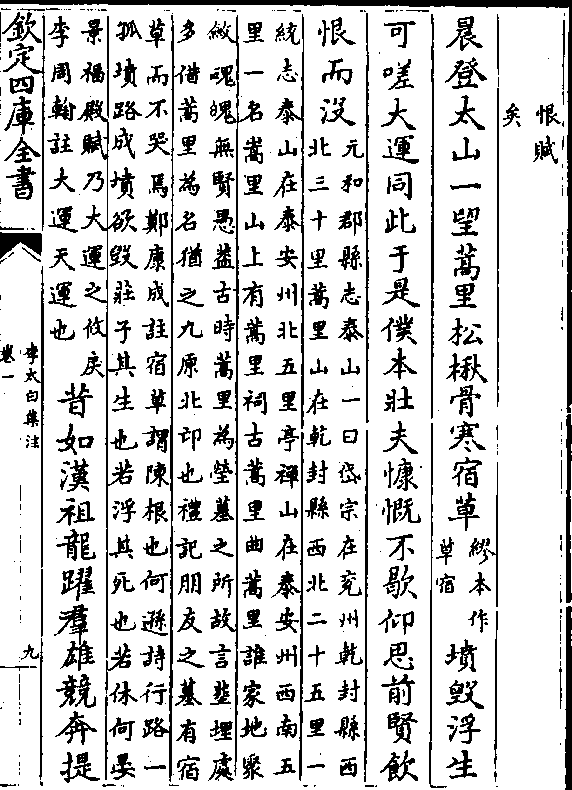 恨賦
矣
晨登太山一望蒿里松楸骨寒宿草
繆本作
草宿
墳毀浮生
可嗟大運同此于是僕本壯夫慷慨不歇仰思前賢飲
恨而沒
元和郡縣志泰山一曰岱宗在兗州乾封縣西
北三十里蒿里山在乾封縣西北二十五里一
統志泰山在泰安州北五里亭禪山在泰安州西南五
里一名嵩里山上有蒿里祠古蒿里曲蒿里誰家地聚
斂魂魄無賢愚葢古時蒿里為塋墓之所故言塟埋處
多借蒿里為名猶之九原北邙也禮記朋友之墓有宿
草而不哭焉鄭康成註宿草謂陳根也何遜詩行路一
孤墳路成墳欲毀莊子其生也若浮其死也若休何晏
景福殿賦乃大運之攸戾
李周翰註大運天運也
昔如漢祖龍躍羣雄競奔提
欽定四庫全書
李太白集注
卷一
九